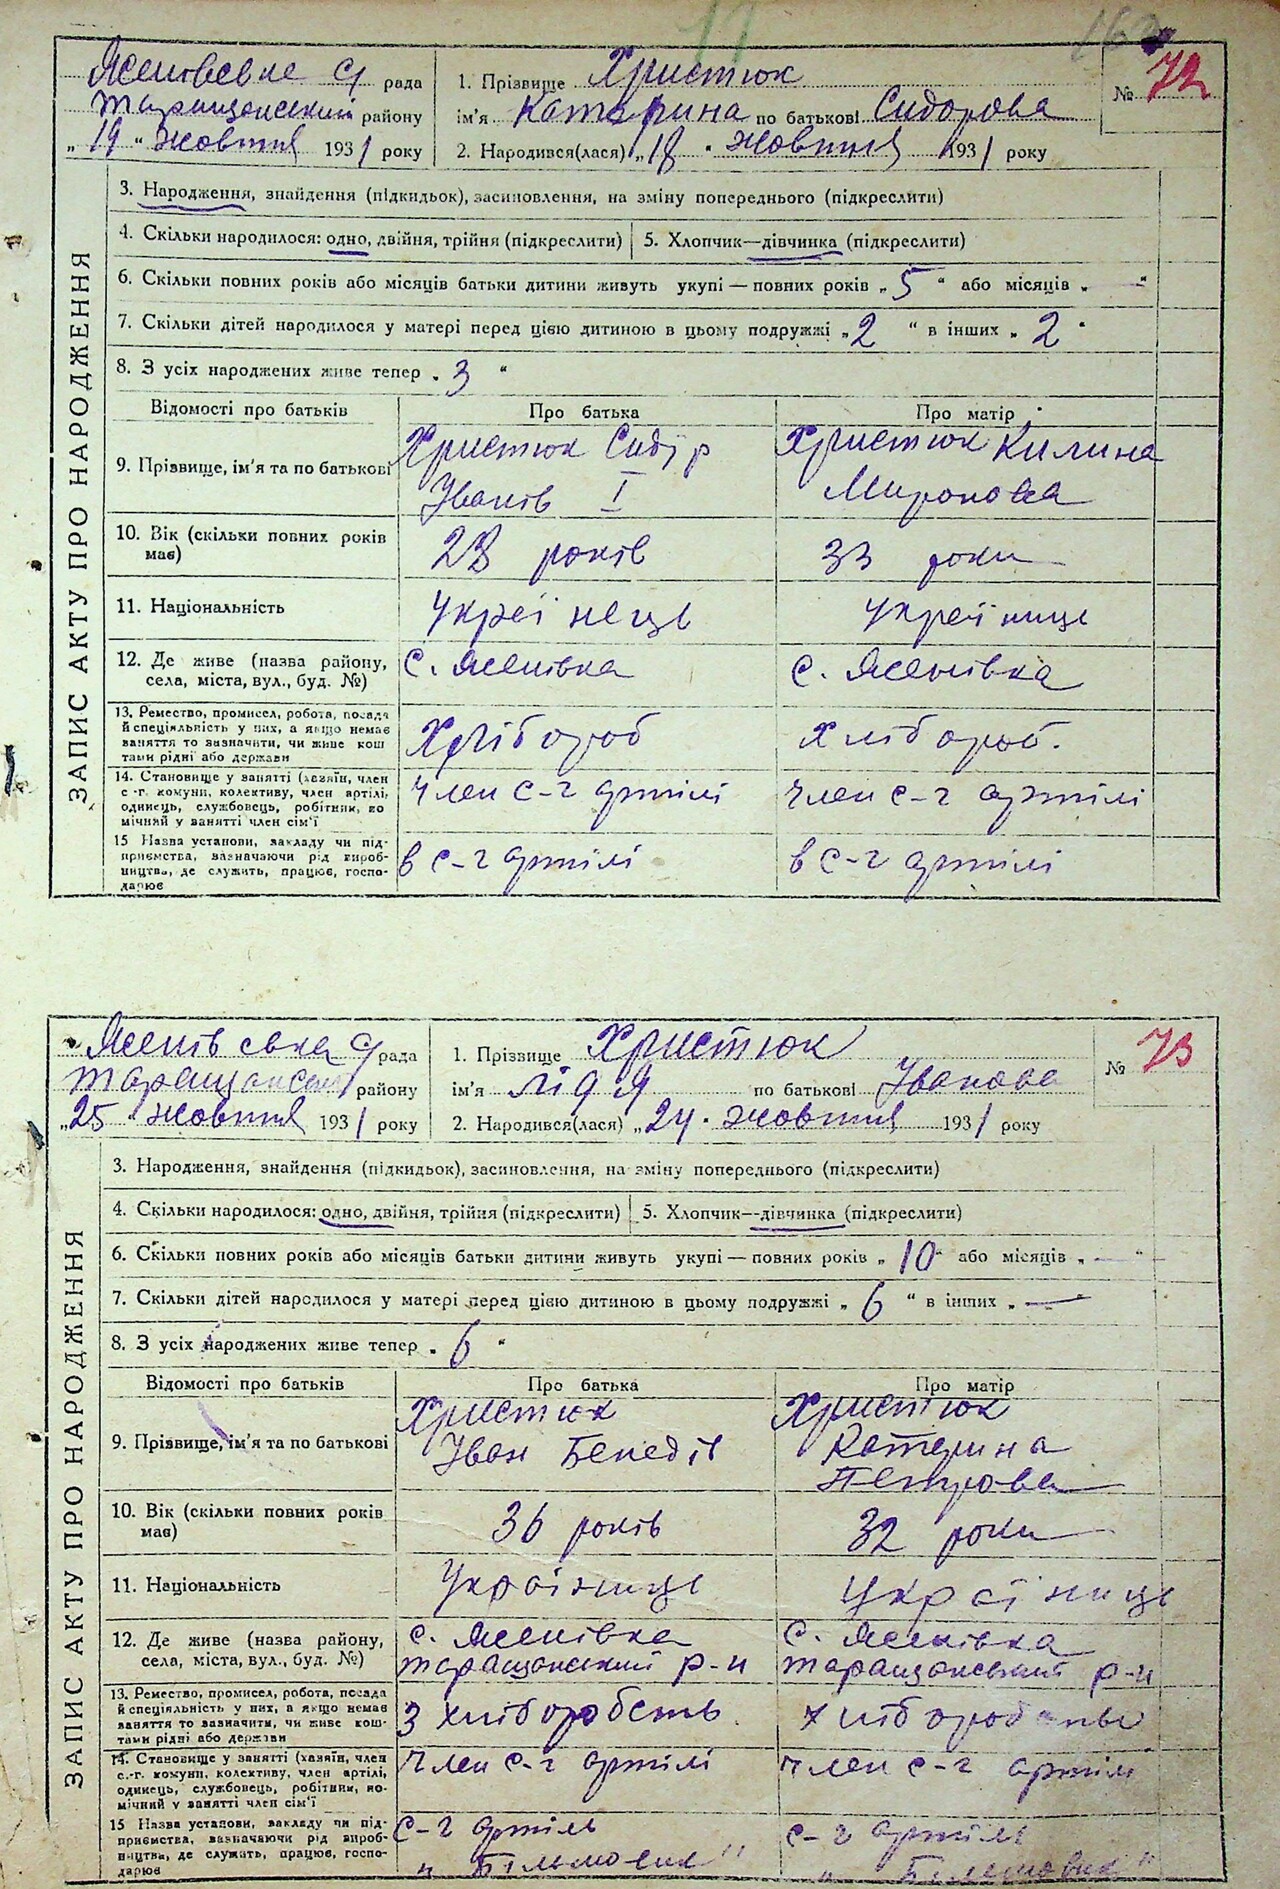 ЗАПИС АКТУ ПРО НАРОДЖЕННЯ
рада
Таращанський району
„19“ жовтня 1931 року
1. Прізвище Христюк
ім'я Катерина по батькові Сидорова
2. Народився(лася) „18. жовтня 1931 року
№ 72
3. Народження, знайдення (підкидьок), засиновлення, на зміну попереднього (підкреслити)
4. Скільки народилося: одно, двійня, трійня (підкреслити) 5. Хлопчик—дівчинка (підкреслити)
6. Скільки повних років або місяців батьки дитини живуть укупі — повних років „5“ або місяців „—“
7. Скільки дітей народилося у матері перед цією дитиною в цьому подружжі „2“ в інших „2“
8. З усіх народжених живе тепер „3“
Відомості про батьків Про батька Про матір
9. Прізвище, ім'я та по батькові
Христюк Сидір
Іванів I
Христюк Килина
Миронова
10. Вік (скільки повних років
має)
28 років 33 роки
11. Національність Українець Українць
12. Де живе (назва району,
села, міста, вул., буд. №)
с. Ясенівка с. Ясенівка
13. Ремество, промисел, робота, посада
й спеціяльність у них, а якщо немає
заняття то зазначити, чи живе кош
тами рідні або держави
Хлібороб хлібороб.
14. Становище у занятті (хазяїн, член
с.-г. комуни, колективу, член артілі,
одинець, службовець, робітник, по
мічний у занятті член сім'ї
член с-г артілі член с-г артілі
15 Назва установи, закладу чи під-
приємства, зазначаючи рід вироб-
ництва, де служить, працює, госпо-
дарює
в с-г артілі в с-г артілі
ЗАПИС АКТУ ПРО НАРОДЖЕННЯ
рада
району
„25 жовтня 1931 року
1. Прізвище Христюк
ім'я Лідя по батькові Іванова
2. Народився(лася) „24. жовтня 1931 року
№ 73
3. Народження, знайдення (підкидьок), засиновлення, на зміну попереднього (підкреслити)
4. Скільки народилося: одно, двійня, трійня (підкреслити) 5. Хлопчик—дівчинка (підкреслити)
6. Скільки повних років або місяців батьки дитини живуть укупі — повних років „10“ або місяців „—“
7. Скільки дітей народилося у матері перед цією дитиною в цьому подружжі „6“ в інших „—“
8. З усіх народжених живе тепер „6“
Відомості про батьків Про батька Про матір
9. Прізвище, ім'я та по батькові
Христюк
Іван Бенедів
Христюк
Катерина
Петрова
10. Вік (скільки повних років
має)
36 років 32 роки
11. Національність Українць Українць
12. Де живе (назва району,
села, міста, вул., буд. №)
с. Ясенівка
Таращанський р-н
с. Ясенівка
Таращанський р-н
13. Ремество, промисел, робота, посада
й спеціяльність у них, а якщо немає
заняття то зазначити, чи живе кош-
тами рідні або держави
14. Становище у занятті (хазяїн, член
с.-г. комуни, колективу, член артілі,
одинець, службовець, робітник, по-
мічний у занятті член сім'ї
член с-г артілі член с-г артілі
15 Назва установи, закладу чи під-
приємства, зазначаючи рід вироб-
ництва, де служить, працює, госпо-
дарює
с-г артіль
„Більшовик"
с-г артіль
„Більшовик"